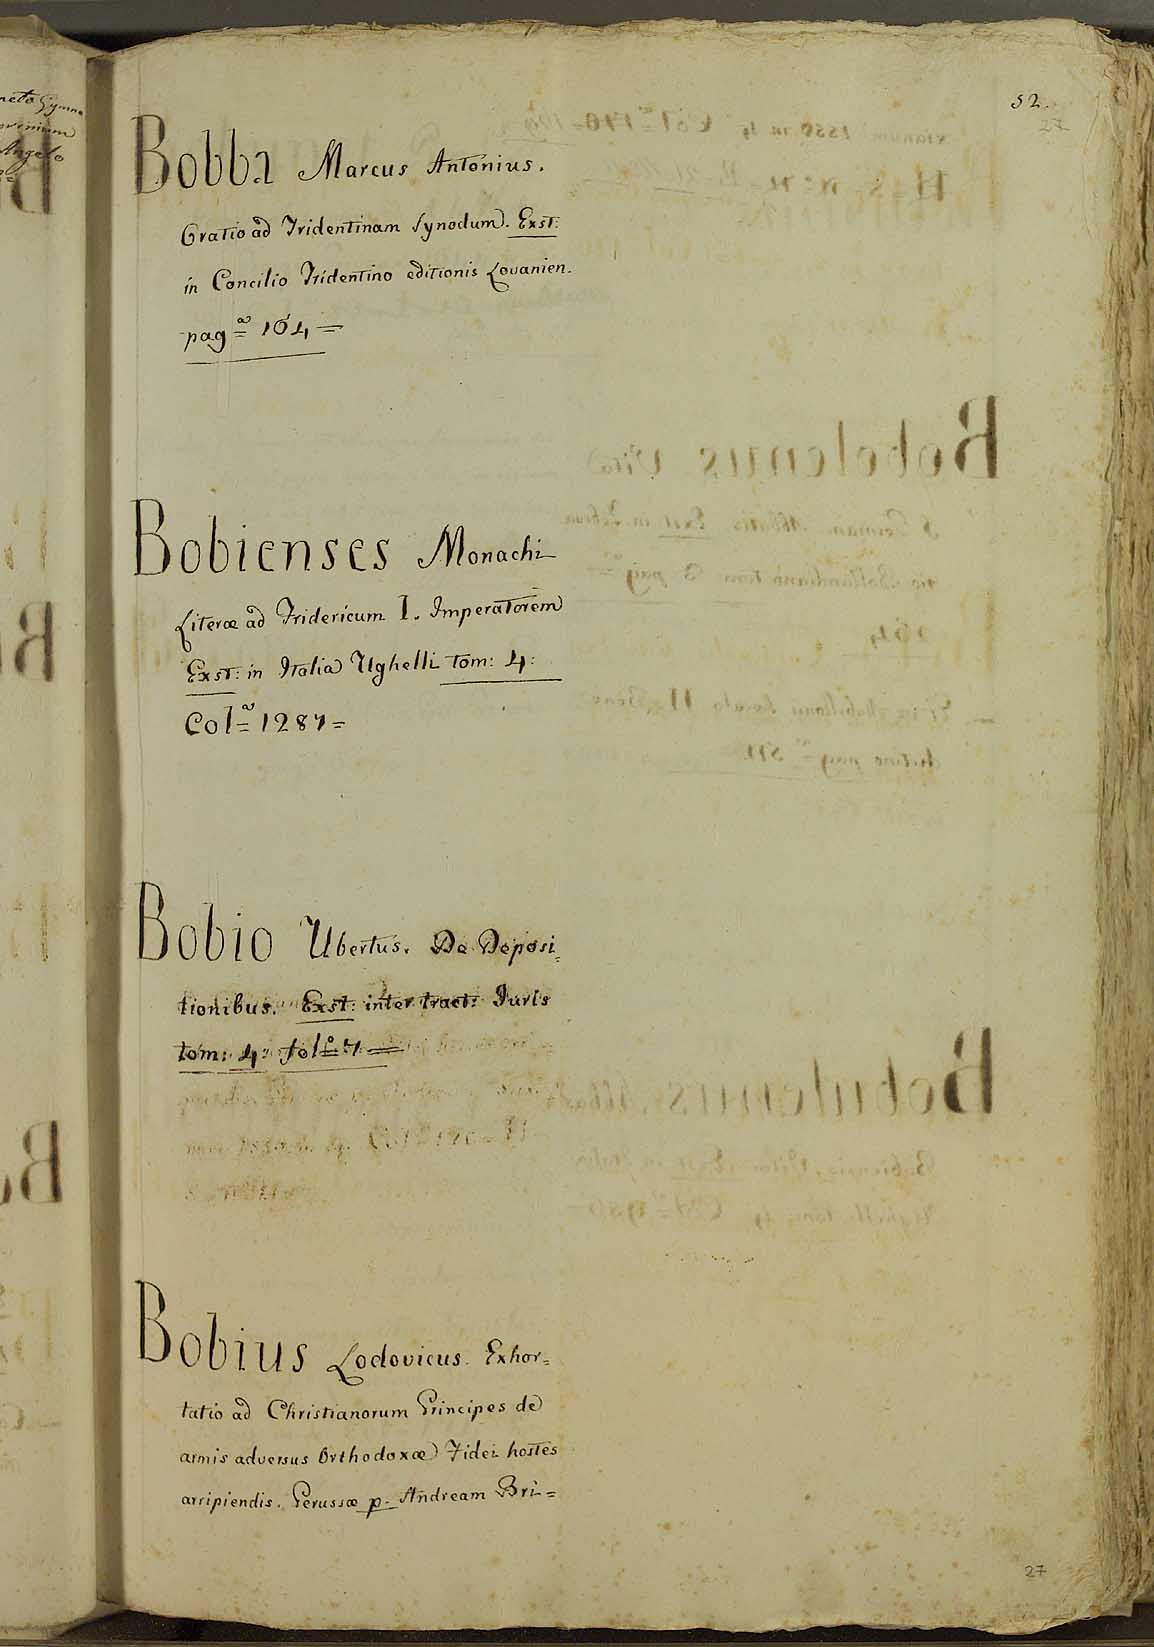 52.
27
Bobba Marcus Antonius.
Oratio ad Tridentinam Synodum. Exst:
in Concilio Tridentino editionis Lovanien.
pag.ª 164 =
Bobienses Monachi
Literæ ad Fridericum I. Imperatorem
Exst: in Italia Ughelli tom: 4:
Colª 1287 =
Bobio Ubertus. De Deposi=
tionibus. Exst: inter tract: Juris
tom: 4: folº 7 =
Bobius Lodovicus. Exhor=
tatio ad Christianorum Principes de
armis adversus Orthodoxæ Fidei hostes
arripiendis. Perussæ p. Andream Bri=
27